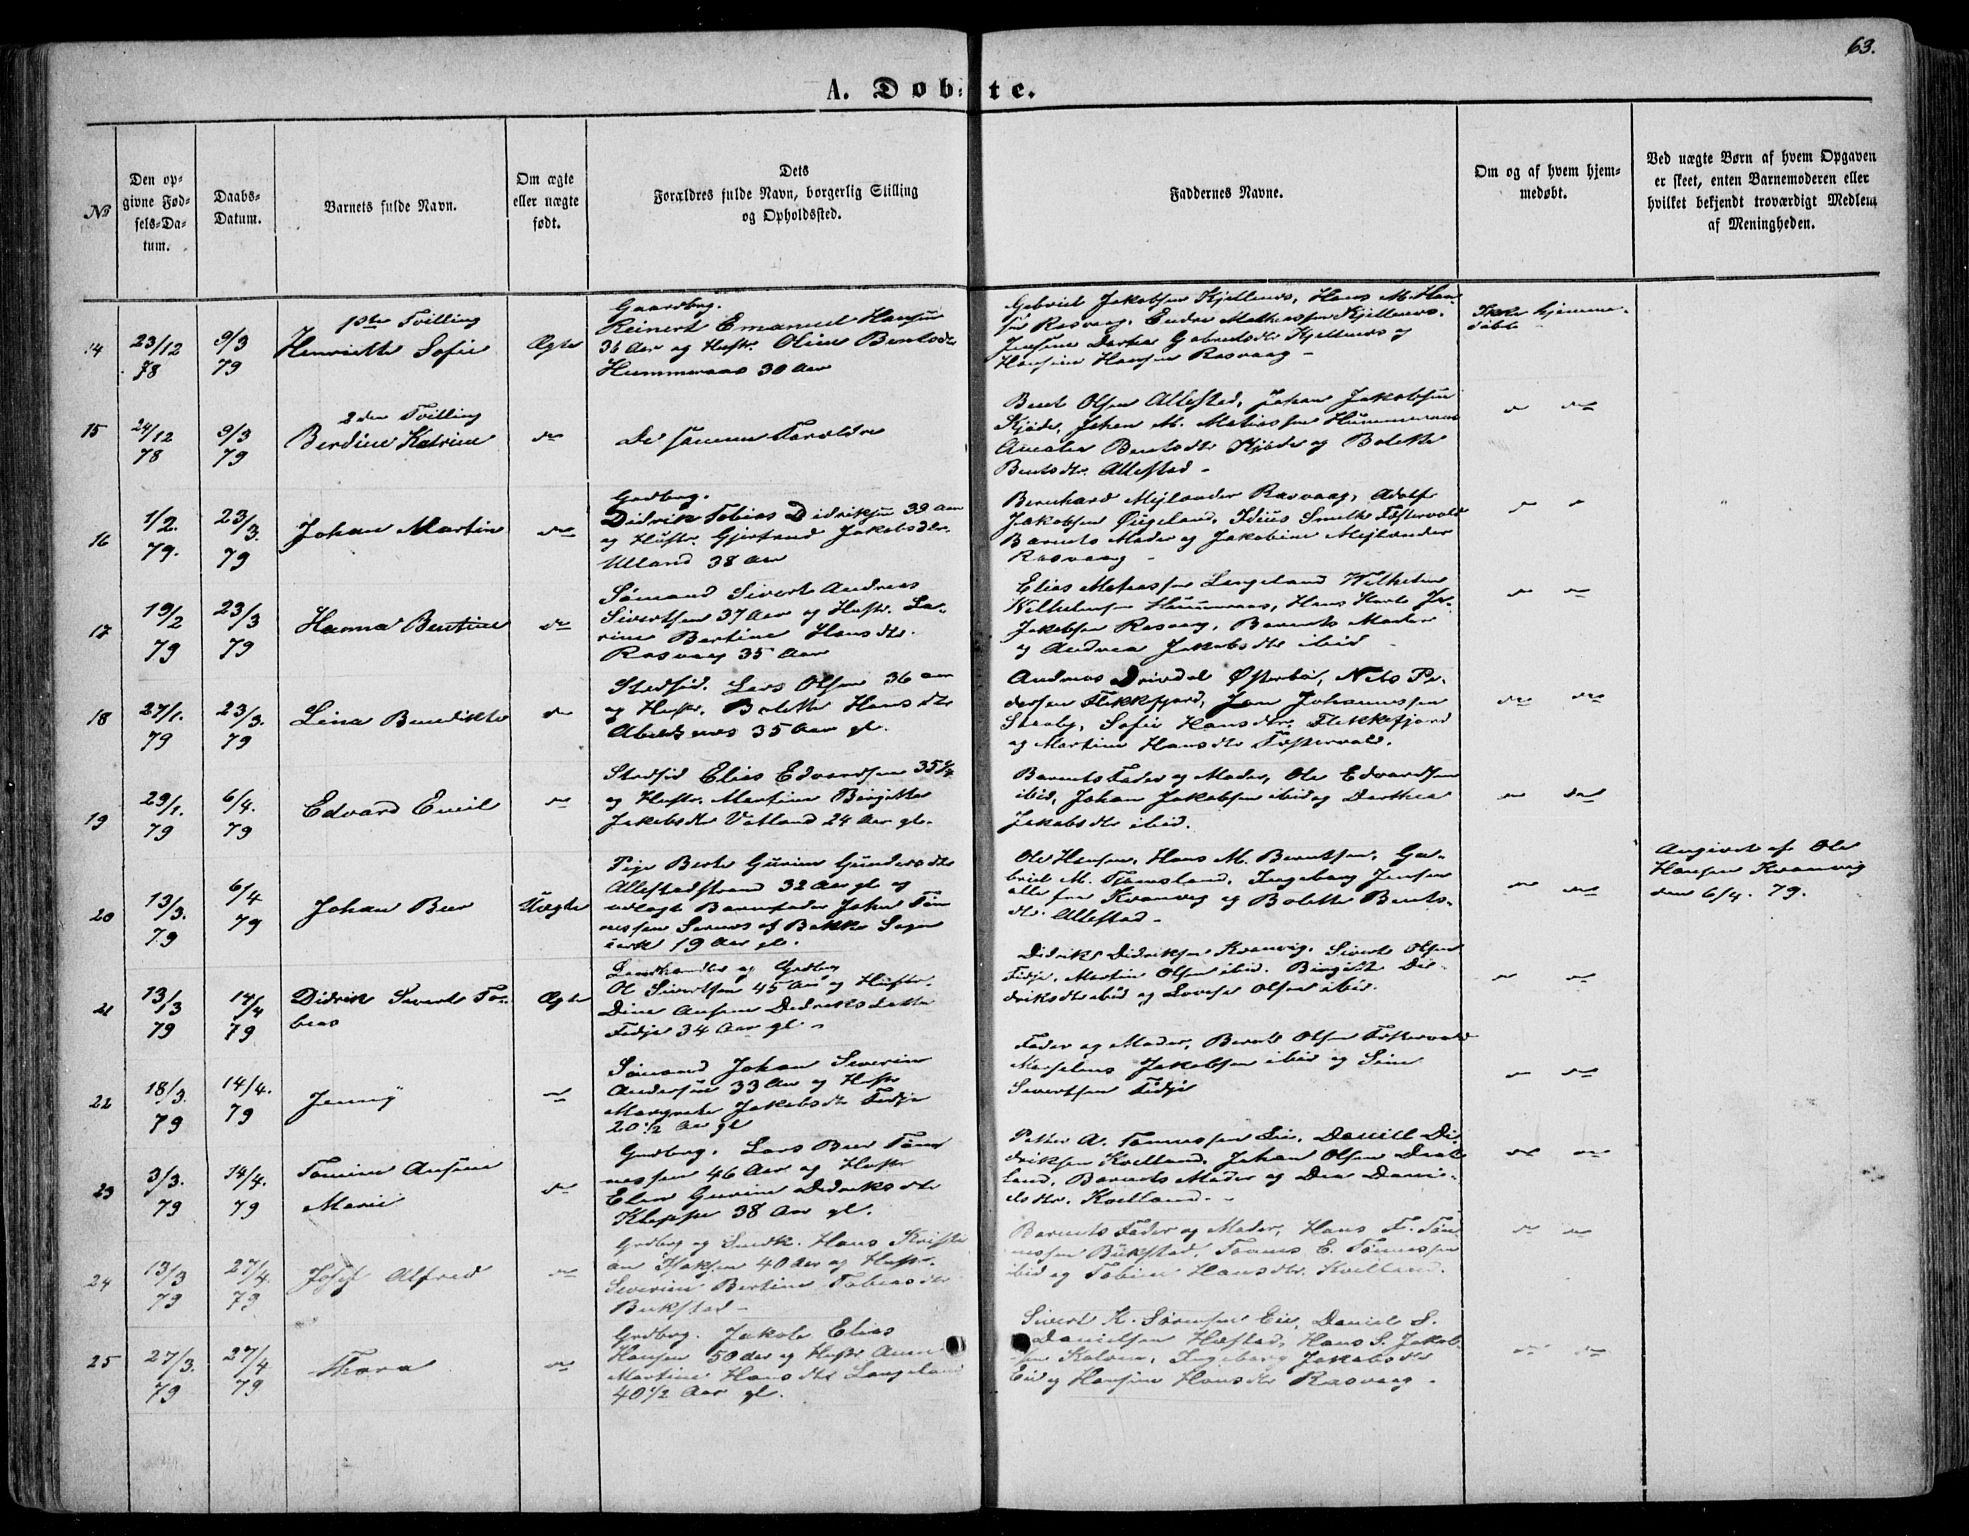 63.
A. Døb-te.
№
Den op-
givne Fød-
sels-Da-
tum.
Daabs-
Datum.
Barnets fulde Navn.
Om ægte
eller uægte
født.
Dets
Forældres fulde Navn, borgerlig Stilling
og Opholdssted.
Faddernes Navne.
Om og af hvem hjem-
medøbt.
Ved uægte Børn af hvem Opgaven
er skeet, enten Barnemoderen eller
hvilket bekjendt troværdigt Medlem
af Menigheden.
14
23/12
78
9/3
79
1ste Tvilling
Henriette Sofie
Ægte
Gaardbrg.
Reinert Emanuel Hansen
36 Aar og Hustr. Oline Bentsdtr
Hummeraas 30 Aar
Gabriel Jakobsen Kjellnes, Hans M. Han-
sen Rasvaag, Endre Mathiassen Kjellnes,
Jensine Dortea Gabrielsdtr Kjellnes og
Hansine Hansen Rasvaag –
Ikke hjemme-
døbt
15
24/12
78
9/3
79
2den Tvilling
Berdine Katrine
do
De samme Forældre
Bent Olsen Allestad, Johan Jakobsen
Kjøde, Johan M. Matiassen Hummeraas
Amalia Bentsdtr Kjøde og Bolette
Bentsdtr. Allestad –
16
1/2.
79.
23/3.
79
Johan Martin
do
Grdbrg.
Didrik Tobias Didriksen 39 Aar
og Hustr. Gjertrud Jakobsdtr.
Ulland 38 Aar
Bernhard Mejlænder Rasvaag, Adolf
Jakobsen Øigeland, Smith Fosterwold
Barnets Moder og Jakobine Mejlænder
Rasvaag –
17
19/2
79
23/3
79
Hanna Bentine
do
Sømand Sivert Andreas
Sivertsen 37 Aar og Hustr. La-
rine Bertine Hansdtr.
Rasvaag 35 Aar
Elias Matiassen Langeland Wilhelm
Wilhelmsen Hummeraas, Hans Karl
Jakobsen Rasvaag, Barnets Moder
og Andrea Jakobsdtr ibid
18
27/1.
79
23/3.
79
Lina Benedikte
do
Stedsid. Lars Olsen 36 Aar
og Hustr. Bolette Hansdtr
Abelsnes 35 Aar gl.
Andreas Drivdal Østerbø, Nils Pe-
dersen Flekkefjord, Jan Johannessen
Sofie Hansdtr. Flekkefjord
og Martine Hansdtr Fosterwold.
19
29/1.
79
6/4.
79
Edvard Emil
do
Stedsid Elias Edvardsen 35
og Hustr. Martine Birgitte
Jakobsdtr Vetland 24 Aar gl.
Barnets Fader og Moder, Ole Edvardsen
ibid, Johan Jakobsen ibid og Dorthea
Jakobsdtr ibid.
20
13/3.
79
6/4
79
Johan Beer
Uægte
Pige Berte Gurine Gundersdtr
Allestadstrand 32 Aar gl og
udlagt Barnefader Johan Tøn
nessen af Bakke Sogn
19 Aar gl.
Ole Hansen, Hans M. Berntsen, Ga-
briel M. Tjomsland, Ingeborg Jensen
alle fra Kvanvig og Bolette Bents-
dtr. Allestad –
Angivet af Ole
Hansen Kvanvig
den 6/4. 79.
21
13/3
79
14/4
79
Didrik Sivert To-
bias
Ægte
Landhandler og Grdbrg
Ole Sivertsen 45 Aar og Hustr.
Dine Ansine Didriksdatter
Fedje 34 Aar gl –
Didrik Didriksen Kvanvig. Sivert Olsen
Fidje, Martin Olsen ibid. Birgitte Did-
riksdtr ibid og Lovise Olsen ibid.
22
18/3.
79
14/4.
79
Jenny
do
Sømand Johan Severin
Andersen 33 Aar og Hustr
Margrete Jakobsdtr Fedje
20 1/2 Aar gl
Fader og Moder, Bernt Olsen Fosterwold
Marselius Jakobsen ibid og Sine
Sivertsen Fidje
23
3/3.
79
14/4.
79
Tomine Ansine
Marie
do
Grdbrg. Lars Beer Tøn
nessen 46 Aar og Hustr
Elen Gurine Didriksdtr
Kleppe 38 Aar gl.
Petter A. Tønnessen Eie, Daniel Di-
driksen Kvelland, Johan Olsen
land, Barnets Moder og Dea Dani-
elsdtr. Kvelland. –
24
13/3
79
27/4.
79
Josef Alfred
do
Grdbrg og Smdk. Hans Kristi
an Isaksen 40 Aar og Hustr.
Severine Bertine Tobiasdtr
Bukstad –
Barnets Fader og Moder, Hans F. Tøn
nessen Bukstad, Tønnes E. Tønnessen
ibid og Tobine Hansdtr. Kvelland.
25
27/3.
79
27/4
79
Thora
do
Grdbrg. Jakob Elias
Hansen 50 Aar og Hustr Anne
Martine Hansdtr Langeland
40 1/2 Aar gl.
Sivert K. Sørensen Eie, Daniel S.
Danielsen Hæstad, Hans S. Jakob-
sen Kalven, Ingeborg Jakobsdtr
Eie og Hansine Hansdtr Rasvaag –